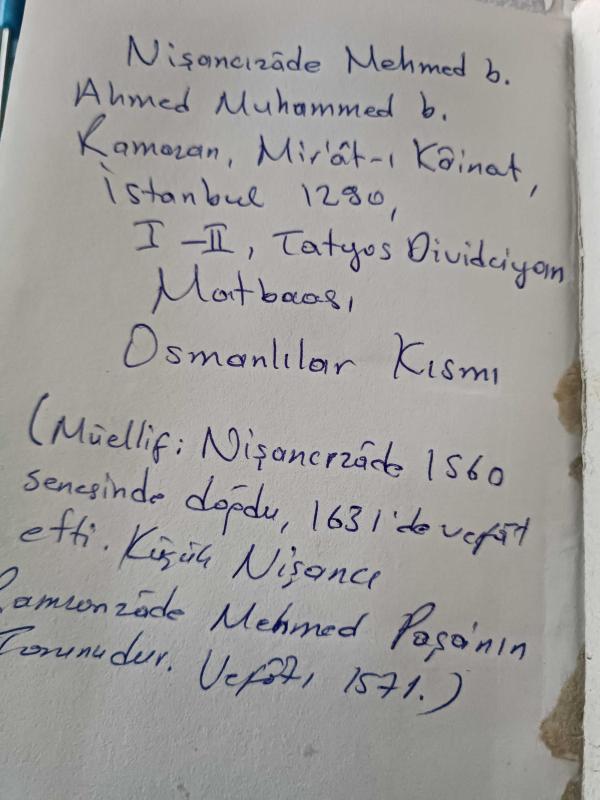 Nişancızâde Mehmed b.
Ahmed Muhammed b.
Ramazan, Mir'ât-ı Kâinat,
İstanbul 1290,
I-II, Tatyos Dividciyan
Matbaası,
Osmanlılar Kısmı
(Müellif: Nişancızâde 1560
senesinde doğdu, 1631'de vefât
etti. Küçük Nişancı
Ramazanzâde Mehmed Paşa'nın
Torunudur. Vefâtı 1571.)